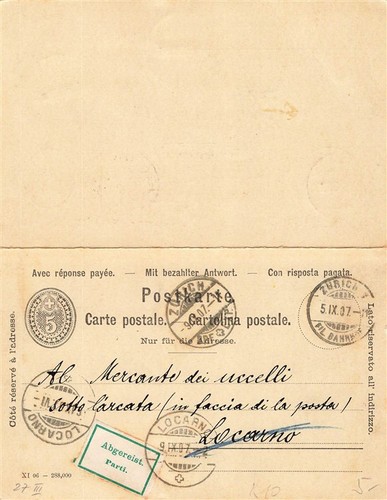 Avec réponse payée. — Mit bezahlter Antwort. — Con risposta pagata.
Postkarte.
Carte postale. Cartolina postale.
Nur für die Adresse.
Côté réservé à l'adresse.
Lato riservato all'indirizzo.
5
ZÜRICH
5.IX.07
FIL. BAHNH
ZÜRICH
9.IX.07
LOCARNO
LOCARNO
9.IX.07
Al Mercante dei uccelli
Sotto l'arcata (in faccia di la posta)
Locarno
Abgereist.
Parti.
XI 06 - 288,000
27 III
5-